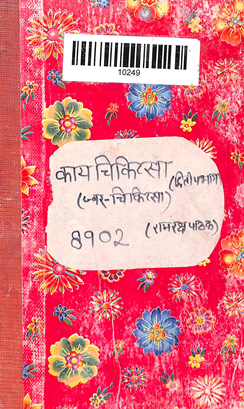 10249
काय चिकित्सा (द्वितीय भाग)
(ज्वर-चिकित्सा)
८१०२ (रामरक्ष पाठक)